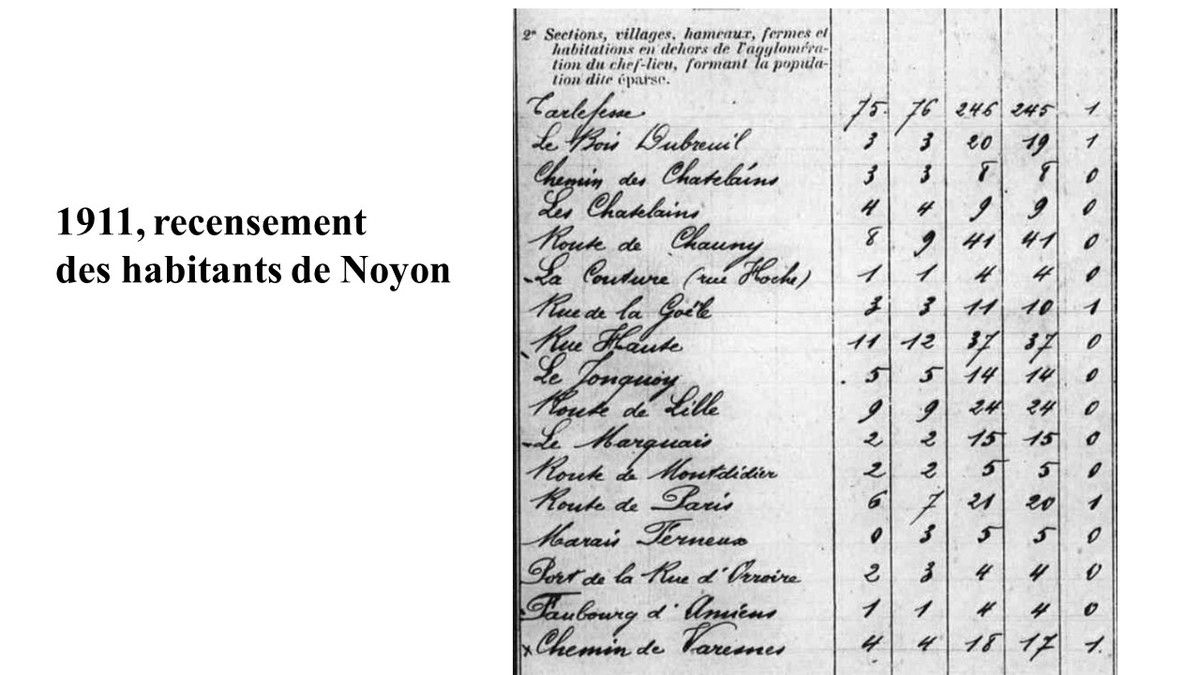 1911, recensement
des habitants de Noyon
2º Sections, villages, hameaux, fermes et
habitations en dehors de l'aggloméra-
tion du chef-lieu, formant la popula-
tion dite éparse.
Tarlefesse 75 76 246 245 1
Le Bois Dubreuil 3 3 20 19 1
Chemin des Chatelains 3 3 8 8 0
Les Chatelains 4 4 9 9 0
Route de Chauny 8 9 41 41 0
La Couture (rue Hoche) 1 1 4 4 0
Rue de la Goële 3 3 11 10 1
Rue Haute 11 12 37 37 0
Le Jonquoy 5 5 14 14 0
Route de Lille 9 9 24 24 0
Le Marquais 2 2 15 15 0
Route de Montdidier 2 2 5 5 0
Route de Paris 6 7 21 20 1
Marais Terneux 0 3 5 5 0
Port de la Rue d'Orroire 2 3 4 4 0
Faubourg d'Amiens 1 1 4 4 0
x Chemin de Varesnes 4 4 18 17 1